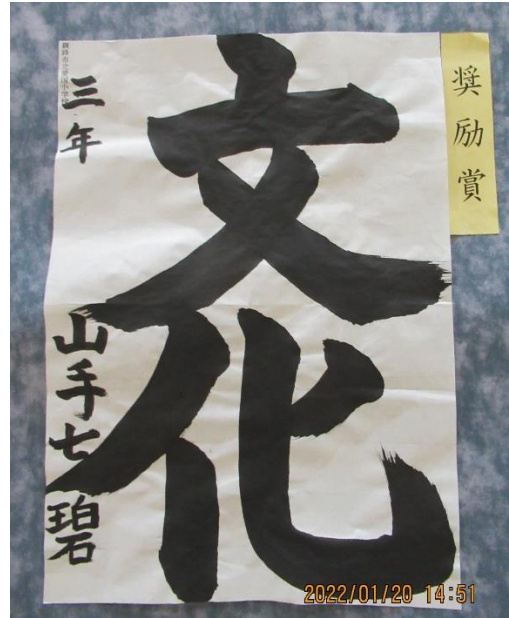 奨励賞
文化
三年
山手七碧
2022/01/20 14:51